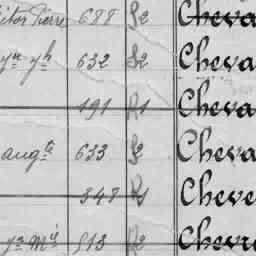 ictor Pierre 688 S2 Cheva
yn yh 632 S2 Cheva
191 R1 Cheva
augte 633 S2 Cheva
348 R1 Cheve
yn Mie 513 R2 Chevr